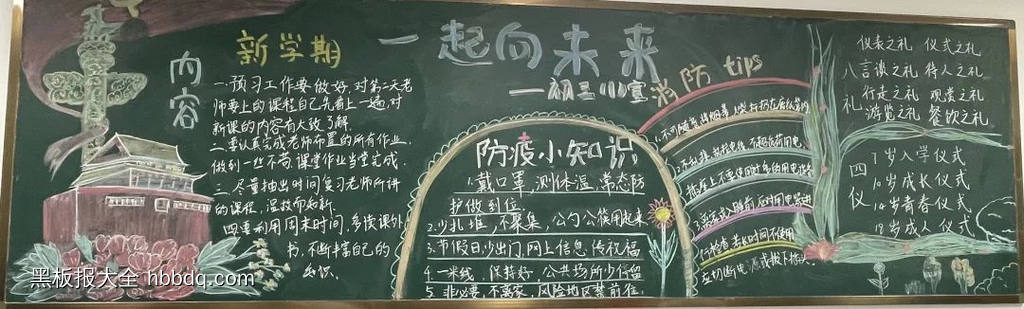 内容
新学期
一.预习工作要做好,对第二天老
师要上的课程自己先看上一遍,对
新课的内容有大致了解.
二.要认真完成老师布置的所有作业.
做到一些不苟,课堂作业当堂完成.
三.尽量抽出时间复习老师所讲
的课程,温故而知新.
四.要利用周末时间,多读课外
书,不断丰富自己的
知识.
一起向未来
防疫小知识
1.戴口罩,测体温,常态防
护做到位
2.少扎堆,不聚集,公勺公筷用起来
3.节假日少出门,网上信息传祝福
4.一米线,保持好,公共场所少停留
5.非必要,不离家,风险地区禁前往.
消防 tips
八礼
仪表之礼 仪式之礼
言谈之礼 待人之礼
行走之礼 观赏之礼
游览之礼 餐饮之礼
四仪
7岁入学仪式
10岁成长仪式
14岁青春仪式
18岁成人仪式
黑板报大全 hbbdq.com